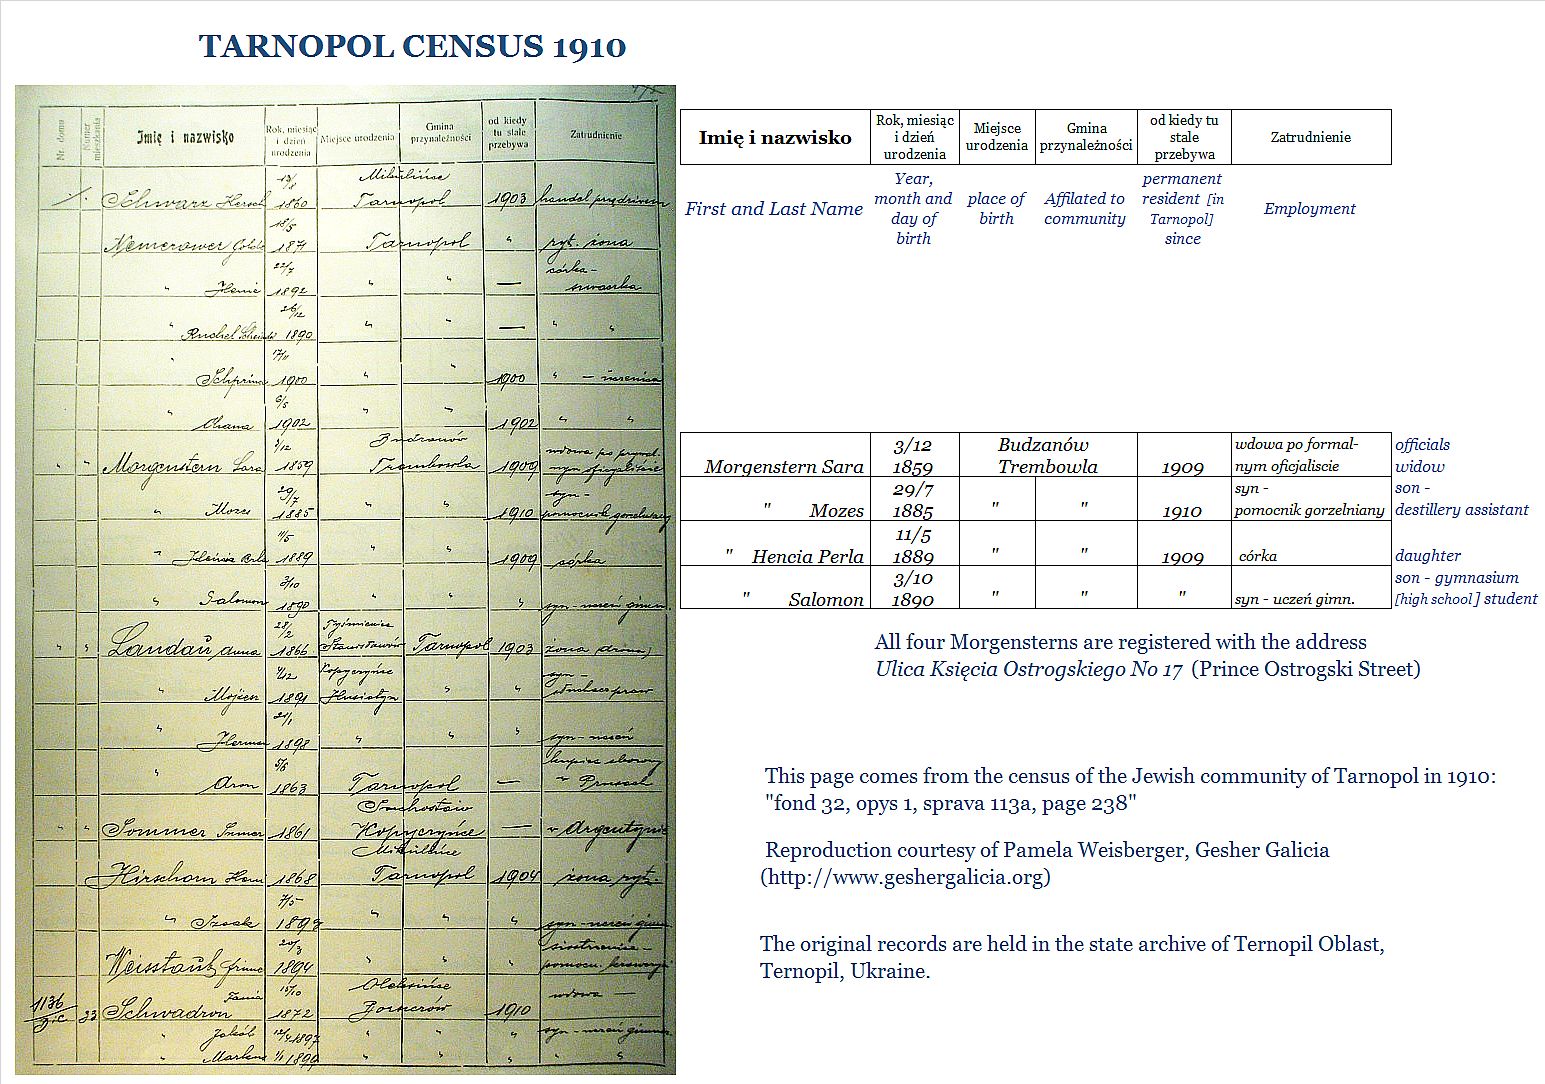 TARNOPOL CENSUS 1910
Nr. domu
Numer mieszkania
Imię i nazwisko
Rok, miesiąc i dzień urodzenia
Miejsce urodzenia
Gmina przynależności
od kiedy tu stale przebywa
Zatrudnienie
13/8 Mikulińce
Schwarz Hersch 1860 Tarnopol 1903 handel
18/5
Nemerower 1871 Tarnopol " ryt. żona
22/7 córka -
" Henie 1892 " " — szwaczka
26/12
" Ruchel 1890 " " — " "
17/11
" 1900 " " 1900 " —
6/5
" Chana 1902 " " 1902 " "
3/12 Budzanów wdowa po formal-
" " Morgenstern Sara 1859 Trembowla 1909 nym oficjaliście
29/7 syn -
" Mozes 1885 " " 1910 pomocnik gorzelniany
11/5
" Hencia Perla 1889 " " 1909 córka
3/10
" Salomon 1890 " " " syn - uczeń gimn.
28/2 Tyśmienica
" " Landau Anna 1866 Stanisławów Tarnopol 1903 żona
4/12 Kopyczyńce syn -
" Mojżesz 1891 Husiatyn " " słuchacz praw
21/1
" Herman 1898 " " " syn - uczeń
5/8 kupiec zbożowy
" Aron 1863 Tarnopol — w Prusach
Suchostaw
" " Sommer 1861 Kopyczyńce — w Argentynie
Mikulińce
Hirschorn 1868 Tarnopol 1904 żona ryt.
7/5
" Izaak 1897 " " " syn - uczeń gimn.
20/3 siostrzenica -
1894 " " "
1136 Fania 15/10 wdowa —
33 Schwadron 1872 1910
Jakób 1897 " " " syn - uczeń gimn.
" 1/1 1899 " " " " "
Imię i nazwisko
Rok, miesiąc
i dzień
urodzenia
Miejsce
urodzenia
Gmina
przynależności
od kiedy tu
stale
przebywa
Zatrudnienie
First and Last Name
Year,
month and
day of
birth
place of
birth
Affilated to
community
permanent
resident [in
Tarnopol]
since
Employment
3/12 Budzanów wdowa po formal- officials
Morgenstern Sara 1859 Trembowla 1909 nym oficjaliscie widow
29/7 syn - son -
" Mozes 1885 " " 1910 pomocnik gorzelniany destillery assistant
11/5
" Hencia Perla 1889 " " 1909 córka daughter
3/10 son - gymnasium
" Salomon 1890 " " " syn - uczeń gimn. [high school] student
All four Morgensterns are registered with the address
Ulica Księcia Ostrogskiego No 17 (Prince Ostrogski Street)
This page comes from the census of the Jewish community of Tarnopol in 1910:
"fond 32, opys 1, sprava 113a, page 238"
Reproduction courtesy of Pamela Weisberger, Gesher Galicia
(http://www.geshergalicia.org)
The original records are held in the state archive of Ternopil Oblast,
Ternopil, Ukraine.